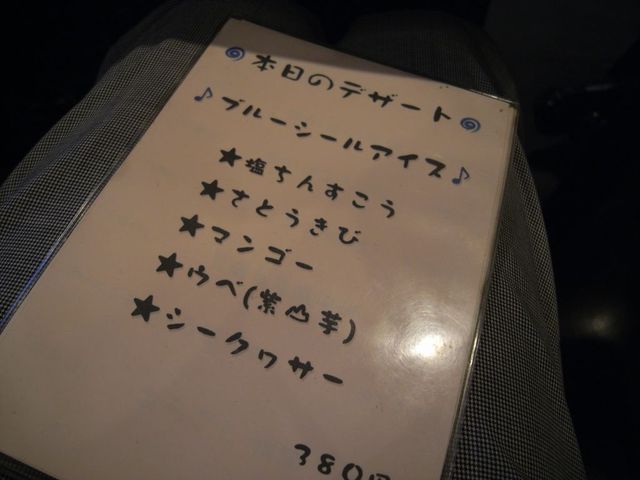 本日のデザート
♪ブルーシールアイス♪
★塩ちんすこう
★さとうきび
★マンゴー
★ウベ(紫心芋)
★シークヮサー
380円